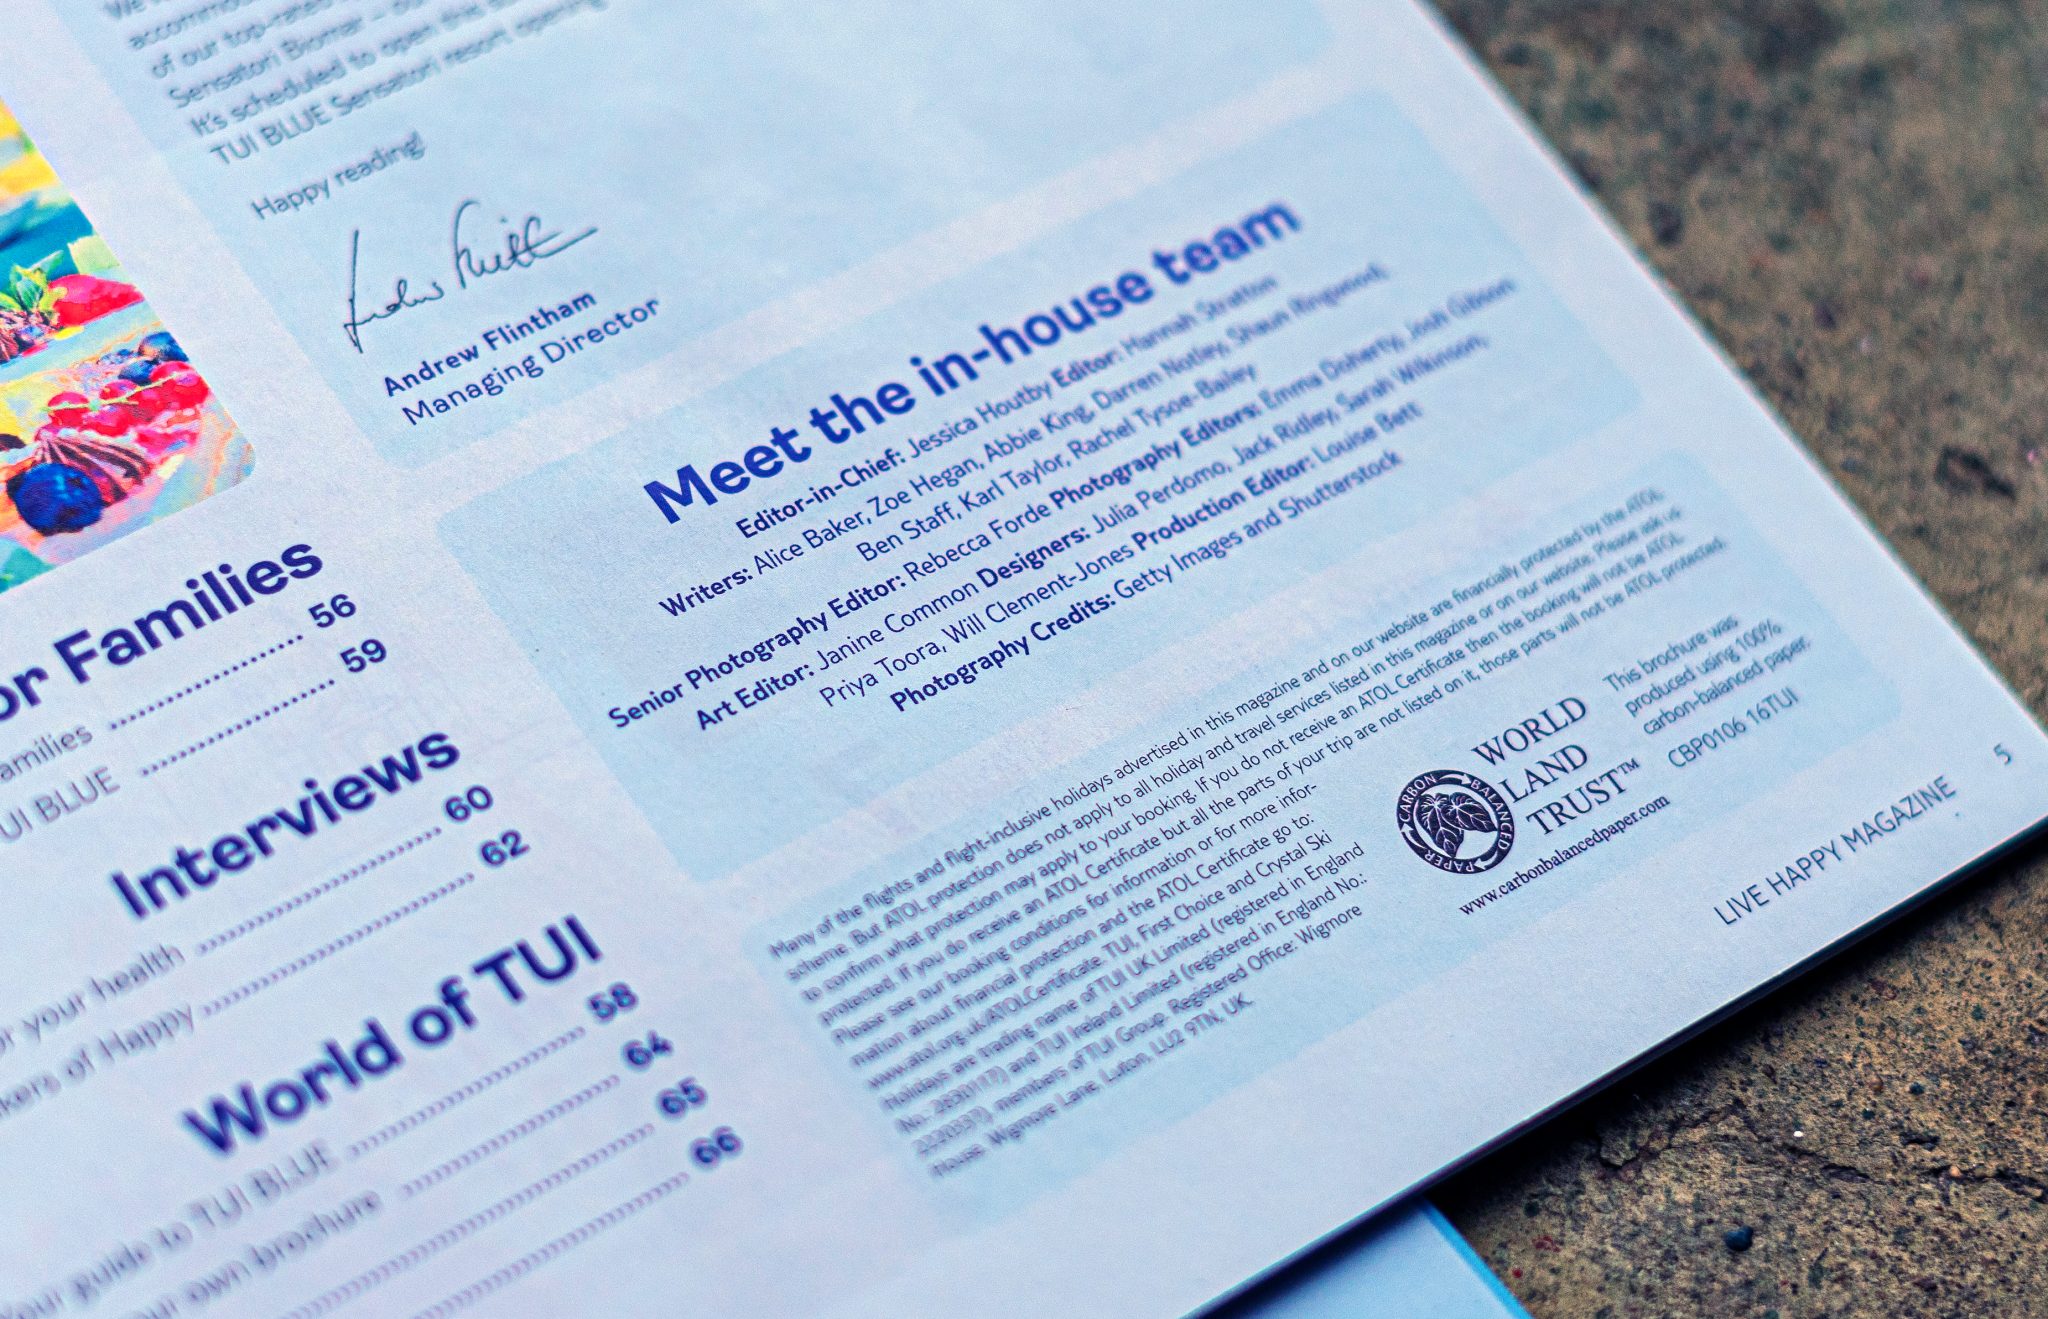 accommo
of our top-rated
Sensatori Biomar – ou
It's scheduled to open this
TUI BLUE Sensatori resort opening
Happy reading!
Andrew Flintham
Managing Director
or Families
amilies 56
UI BLUE 59
Interviews
or your health 60
kers of Happy 62
World of TUI
Your guide to TUI BLUE 58
our own brochure 64
65
66
Meet the in-house team
Editor-in-Chief: Jessica Houtby Editor: Hannah Stratton
Writers: Alice Baker, Zoe Hegan, Abbie King, Darren Notley, Shaun Ringwood,
Ben Staff, Karl Taylor, Rachel Tysoe-Bailey
Senior Photography Editor: Rebecca Forde Photography Editors: Emma Doherty, Josh Gibson
Art Editor: Janine Common Designers: Julia Perdomo, Jack Ridley, Sarah Wilkinson,
Priya Toora, Will Clement-Jones Production Editor: Louise Bett
Photography Credits: Getty Images and Shutterstock
Many of the flights and flight-inclusive holidays advertised in this magazine and on our website are financially protected by the ATOL
scheme. But ATOL protection does not apply to all holiday and travel services listed in this magazine or on our website. Please ask us
to confirm what protection may apply to your booking. If you do not receive an ATOL Certificate then the booking will not be ATOL
protected. If you do receive an ATOL Certificate but all the parts of your trip are not listed on it, those parts will not be ATOL protected.
Please see our booking conditions for information or for more infor-
mation about financial protection and the ATOL Certificate go to:
www.atol.org.uk/ATOLCertificate. TUI, First Choice and Crystal Ski
Holidays are trading name of TUI UK Limited (registered in England
No.: 2830117) and TUI Ireland Limited (registered in England No.:
members of TUI Group. Registered Office: Wigmore
House, Wigmore Lane, Luton, LU2 9TN, UK.
CARBON BALANCED PAPER
WORLD
LAND
TRUST™
www.carbonbalancedpaper.com
This brochure was
produced using 100%
carbon-balanced paper.
CBP0106 16TUI
LIVE HAPPY MAGAZINE 5